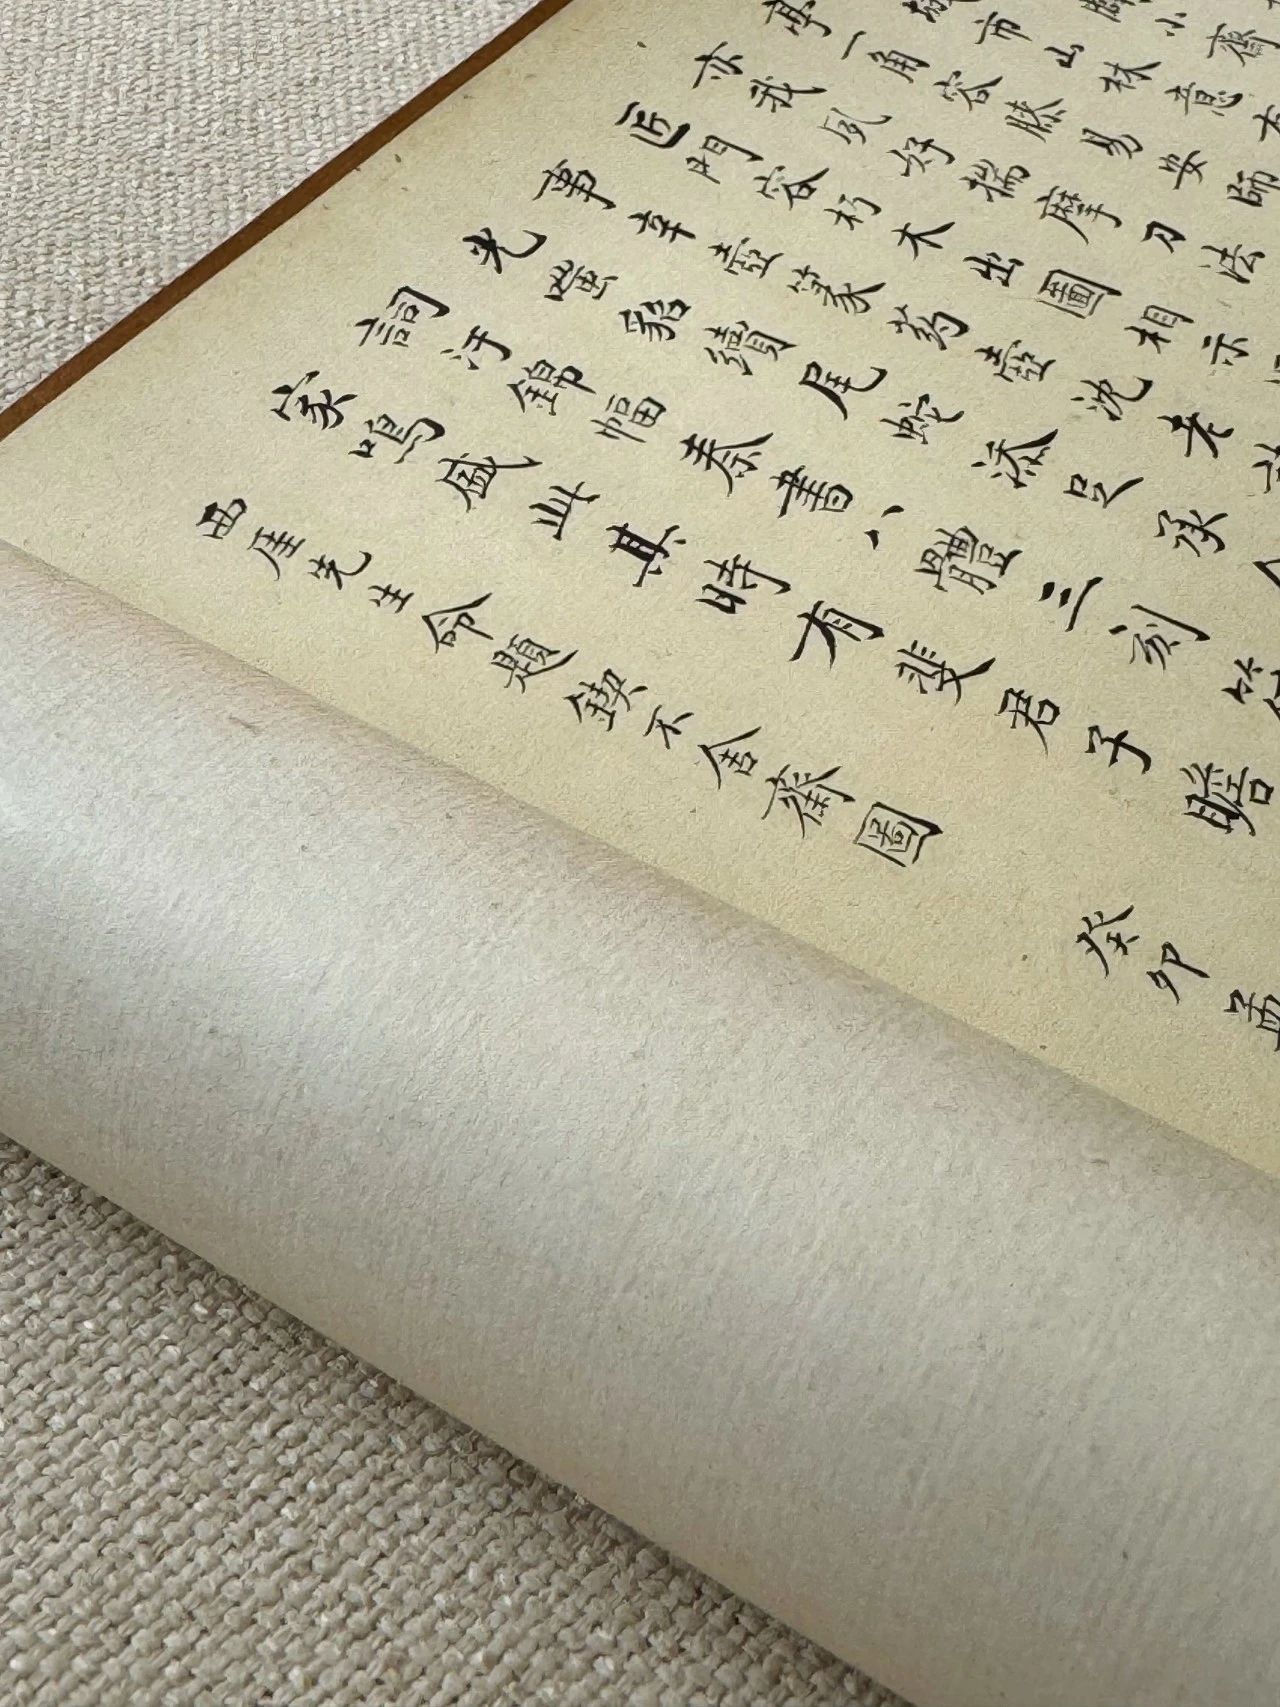 小齋
市山林意
一角容膝易安師
亦我夙好揣摩刀法
匠門容朽木出圖相示
事辛壺篆葯壺沈老
光貂續尾蛇添足承
詞汙錦幅秦書八體三刻
家鳴盛此其時有斐君子瞻
西厓先生命題鍥不舍齋圖
癸卯孟